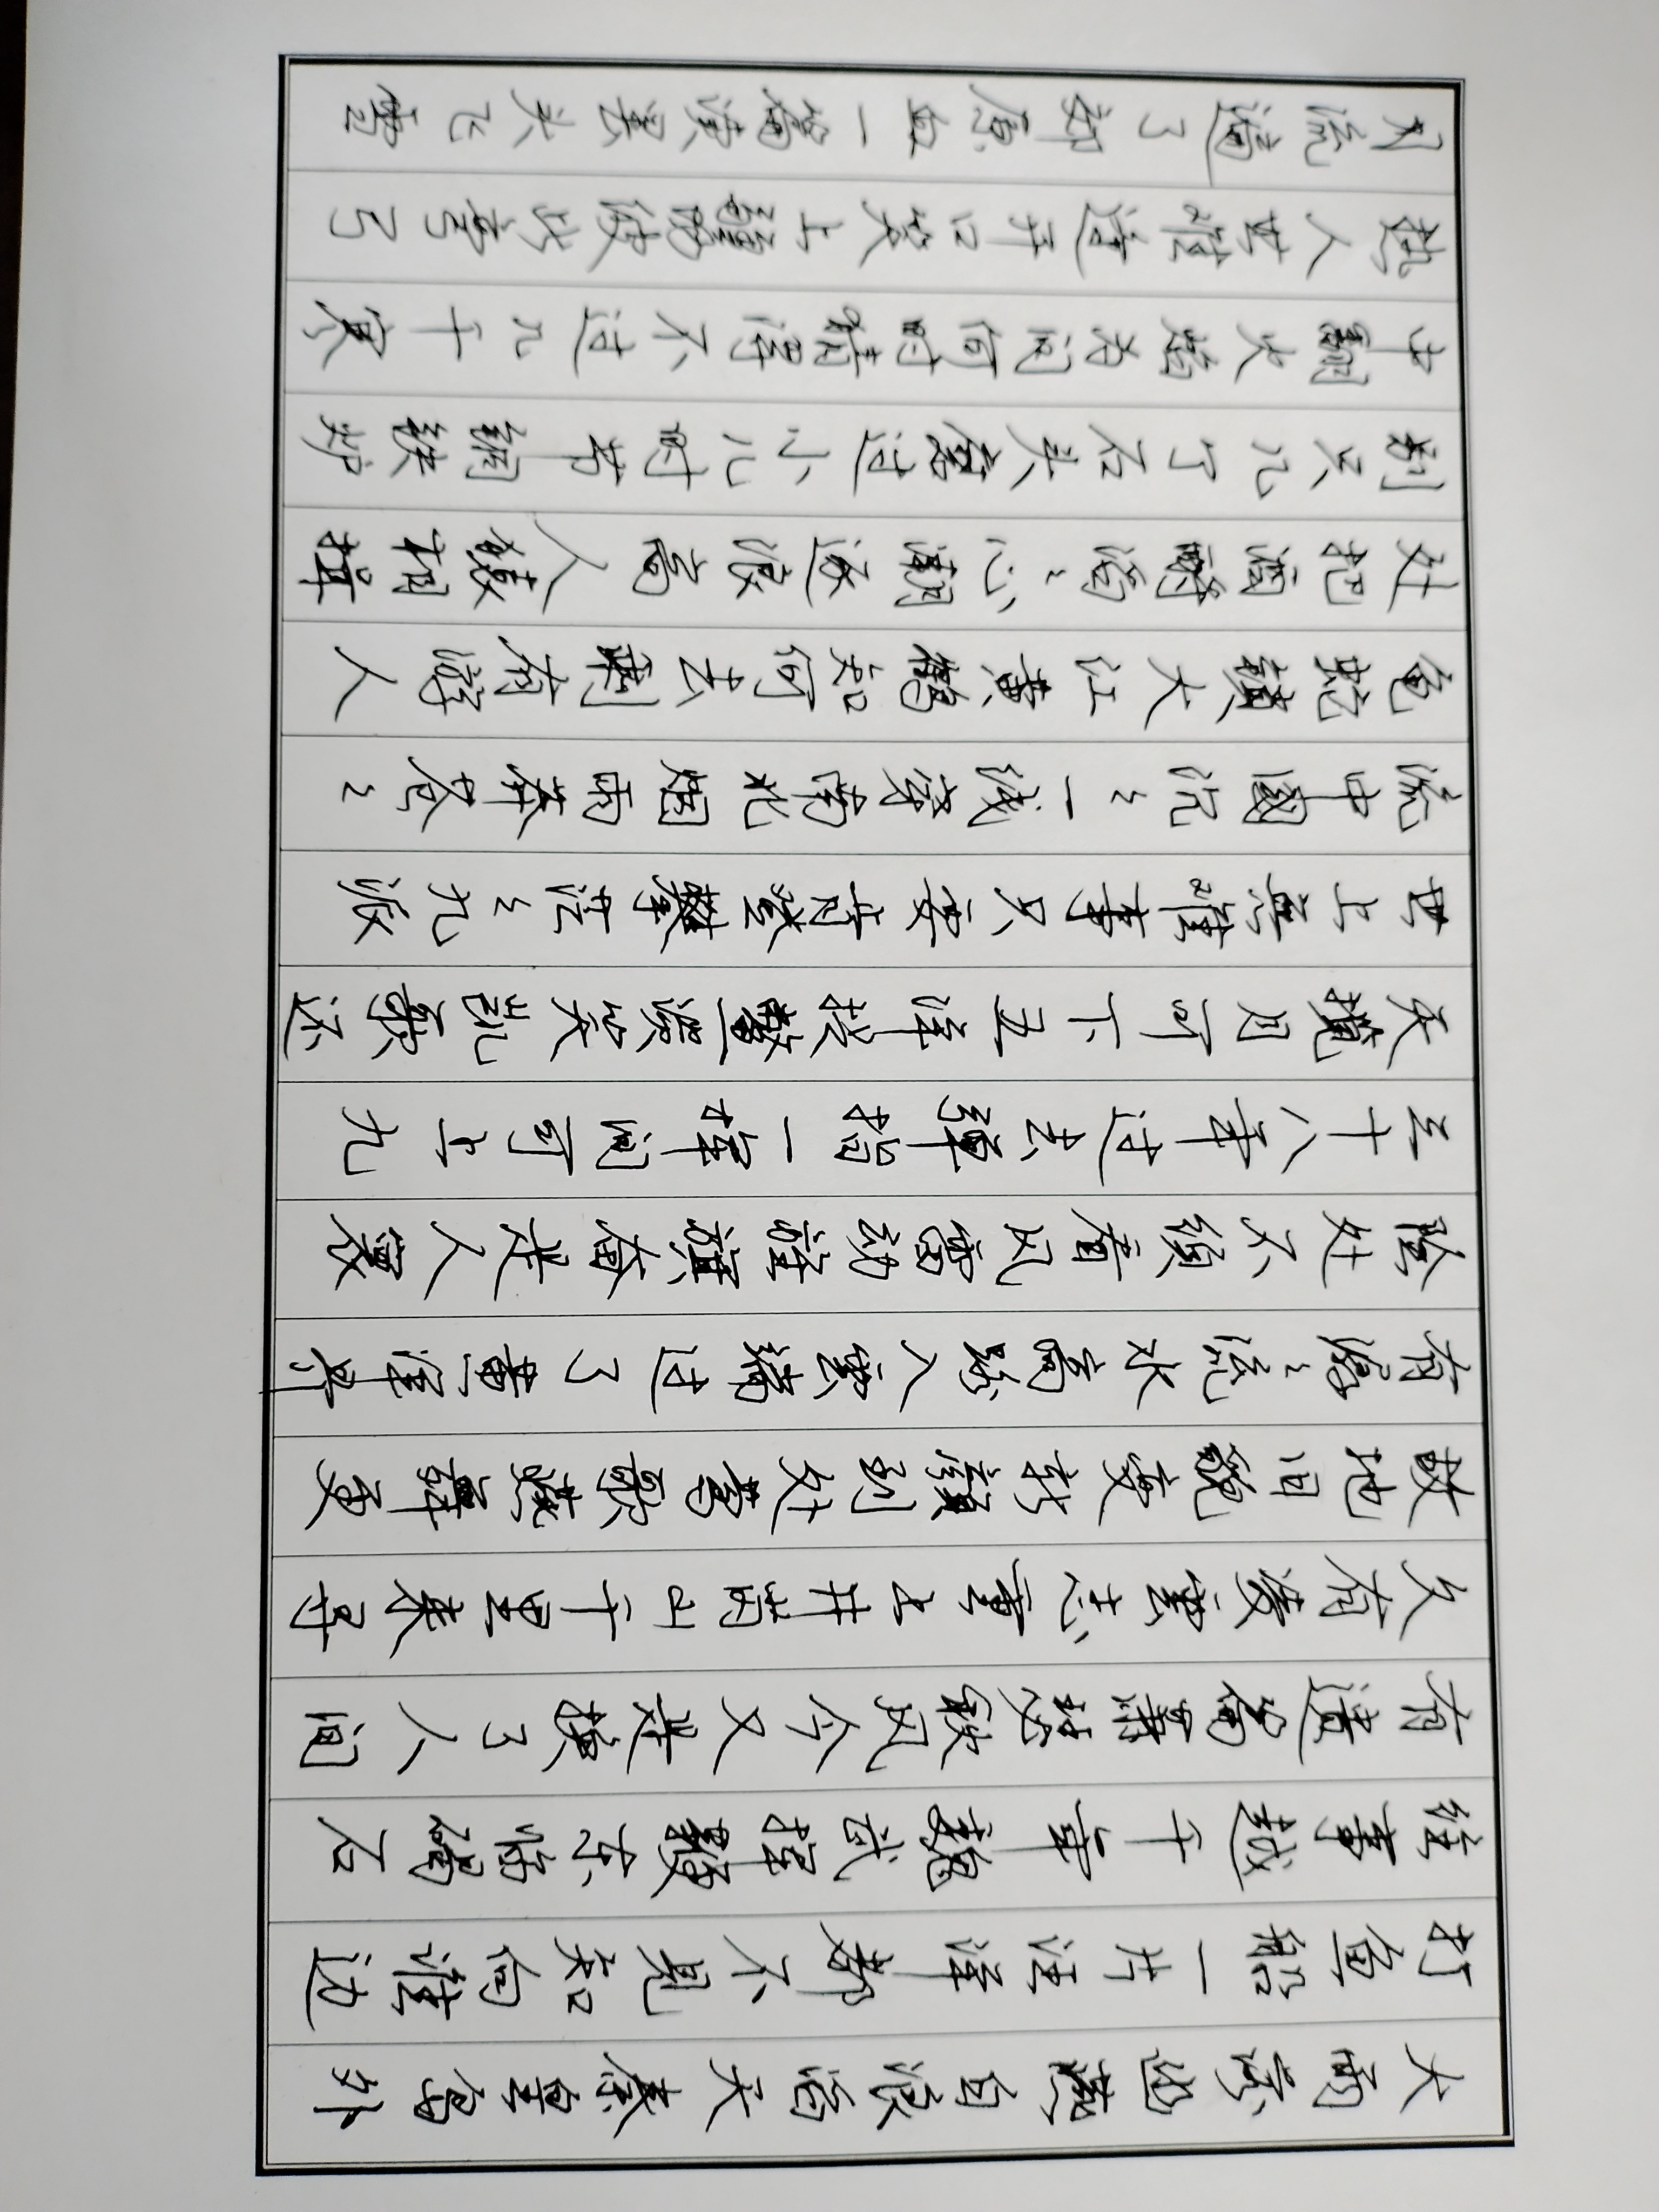 大雨落幽燕白浪滔天秦皇島外
打鱼船一片汪洋都不見知向誰边
往事越千年魏武揮鞭东临碣石
有遺篇萧瑟秋风今又是换了人间
久有凌雲志重上井岡山千里来寻
故地旧貌变新颜到处莺歌燕舞更
有潺々流水高路入雲端过了黄洋界
險处不須看风雷动旌旗奋是人寰
三十八年过去弹指一挥间可上九
天揽月可下五洋捉鳖谈笑凯歌还
世上無難事只要肯登攀茫々九派
流中國沉々一线穿南北烟雨莽苍々
龟蛇鎖大江黄鹤知何去剩有游人
处把酒酹滔々心潮逐浪高人猿相揖
别只几个石头磨过小儿时节铜铁炉
中翻火焰为问何时猜得不过几千寒
热人世難逢开口笑上疆場彼此弯弓
月流遍了郊原血一篇讀罢头飞雪